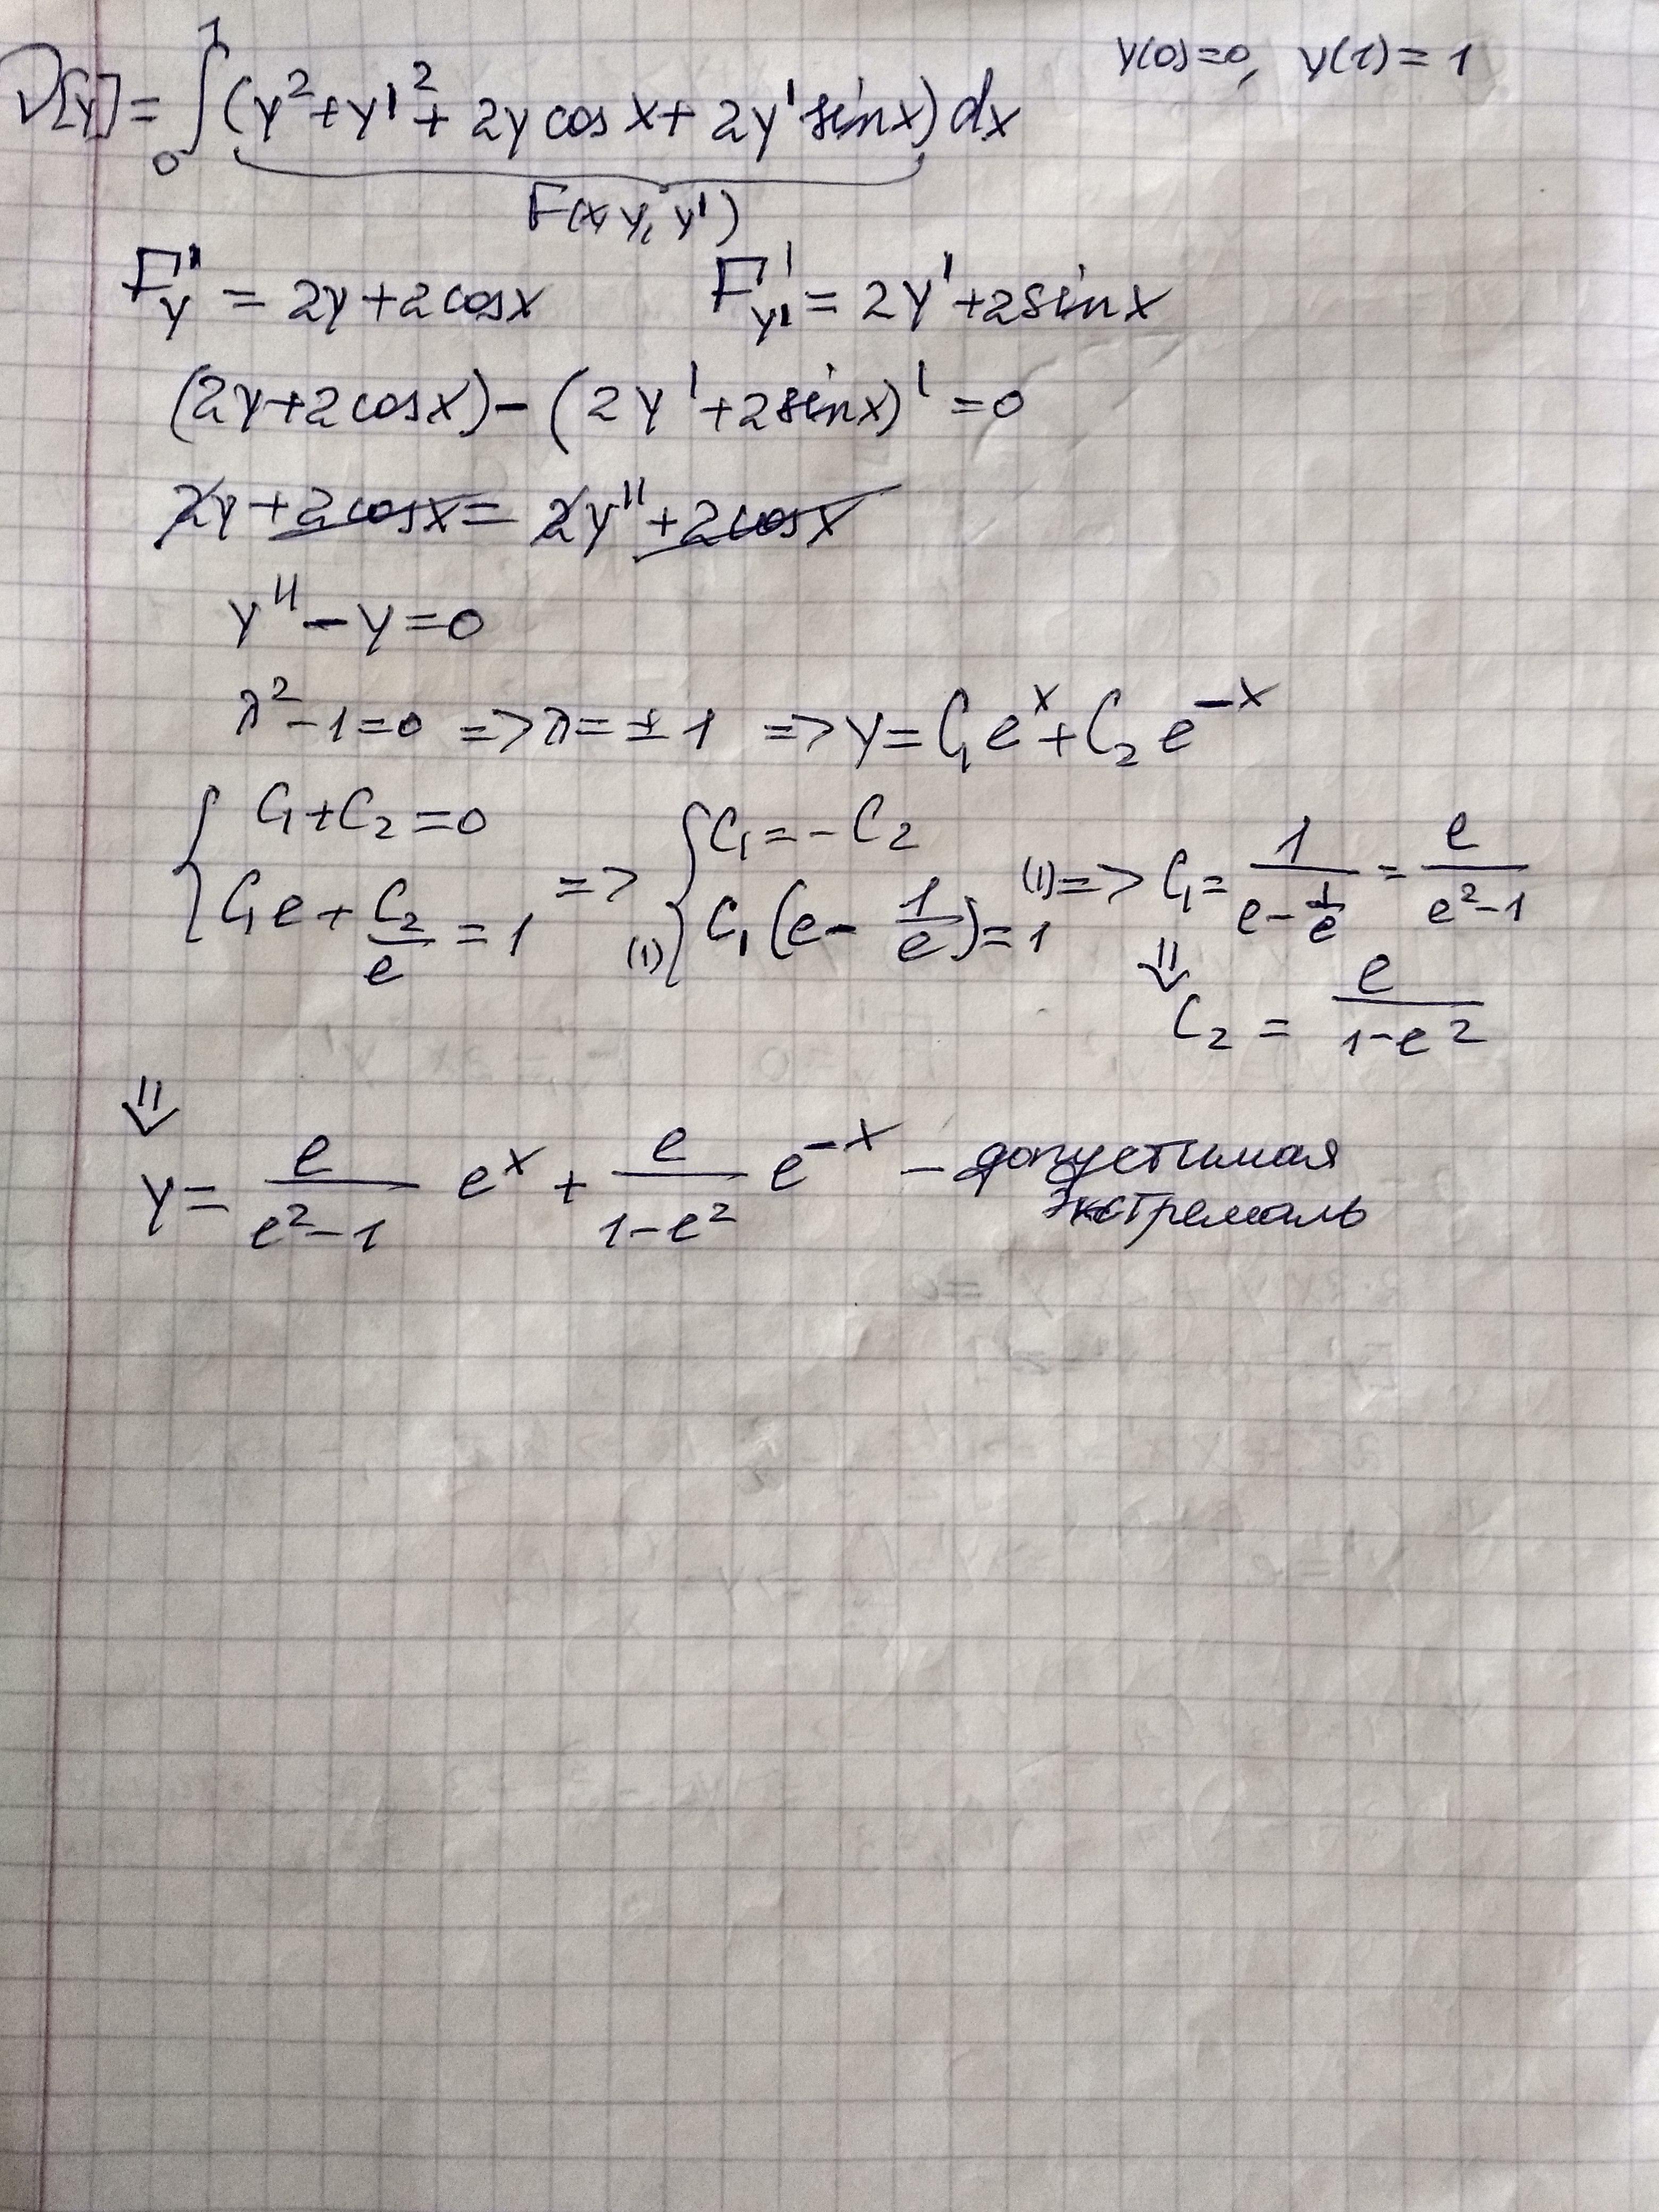 V[y] = ∫₀¹ (y² + y'² + 2y cos x + 2y' sin x) dx     y(0)=0, y(1)=1
F(x, y, y')
F'_y = 2y + 2cos x     F'_y' = 2y' + 2sin x
(2y + 2cos x) − (2y' + 2sin x)' = 0
2y + 2cos x = 2y'' + 2cos x
y'' − y = 0
λ² − 1 = 0 => λ = ± 1 => y = C₁ e^x + C₂ e^−x
{ C₁ + C₂ = 0 ; C₁e + C₂/e = 1 => { C₁ = − C₂ ; (1) C₁ (e − 1/e) = 1 (1) => C₁ = 1/(e − 1/e) = e/(e² − 1)
⇓ C₂ = e/(1 − e²)
⇓
y = e/(e² − 1) e^x + e/(1 − e²) e^−x – допустимая
экстремаль